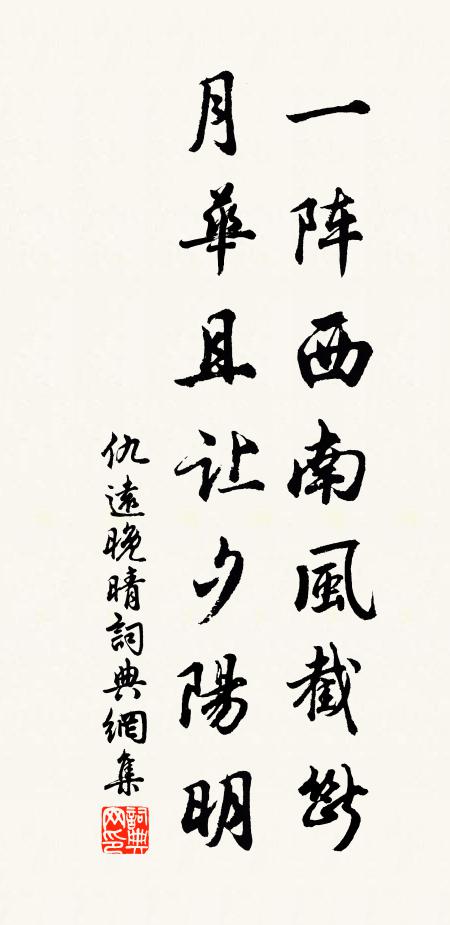 一阵西南風截斷
月華且让夕陽明
仇遠晚晴詞典網集
詞典网印